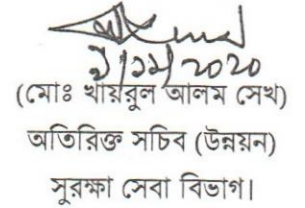 (মোঃ খায়রুল আলম সেখ)
অতিরিক্ত সচিব (উন্নয়ন)
সুরক্ষা সেবা বিভাগ।